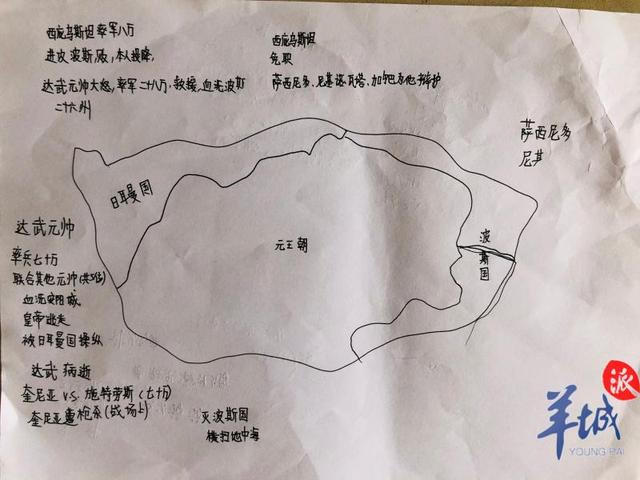 西庇乌斯坦率军八万
进攻波斯版,本人投降,
达武元帅大怒,率军二十八万,救援,血洗波斯
二十六州
西庇乌斯坦
免职
萨西尼多、尼基诺瓦塔、加尔巴为他书辩护
萨西尼多
尼其
日耳曼国
元王朝
波斯国
达武元帅
率兵七十万
联合其他元帅(共5位)
血洗安阳城
皇帝逃走
被日耳曼国操纵
达武 病逝
奎尼亚 V.S. 施特劳斯(七十万)
奎尼亚遭枪杀(战场上)
灭波斯国
横扫地中海
派
羊城
YOUNG PAI